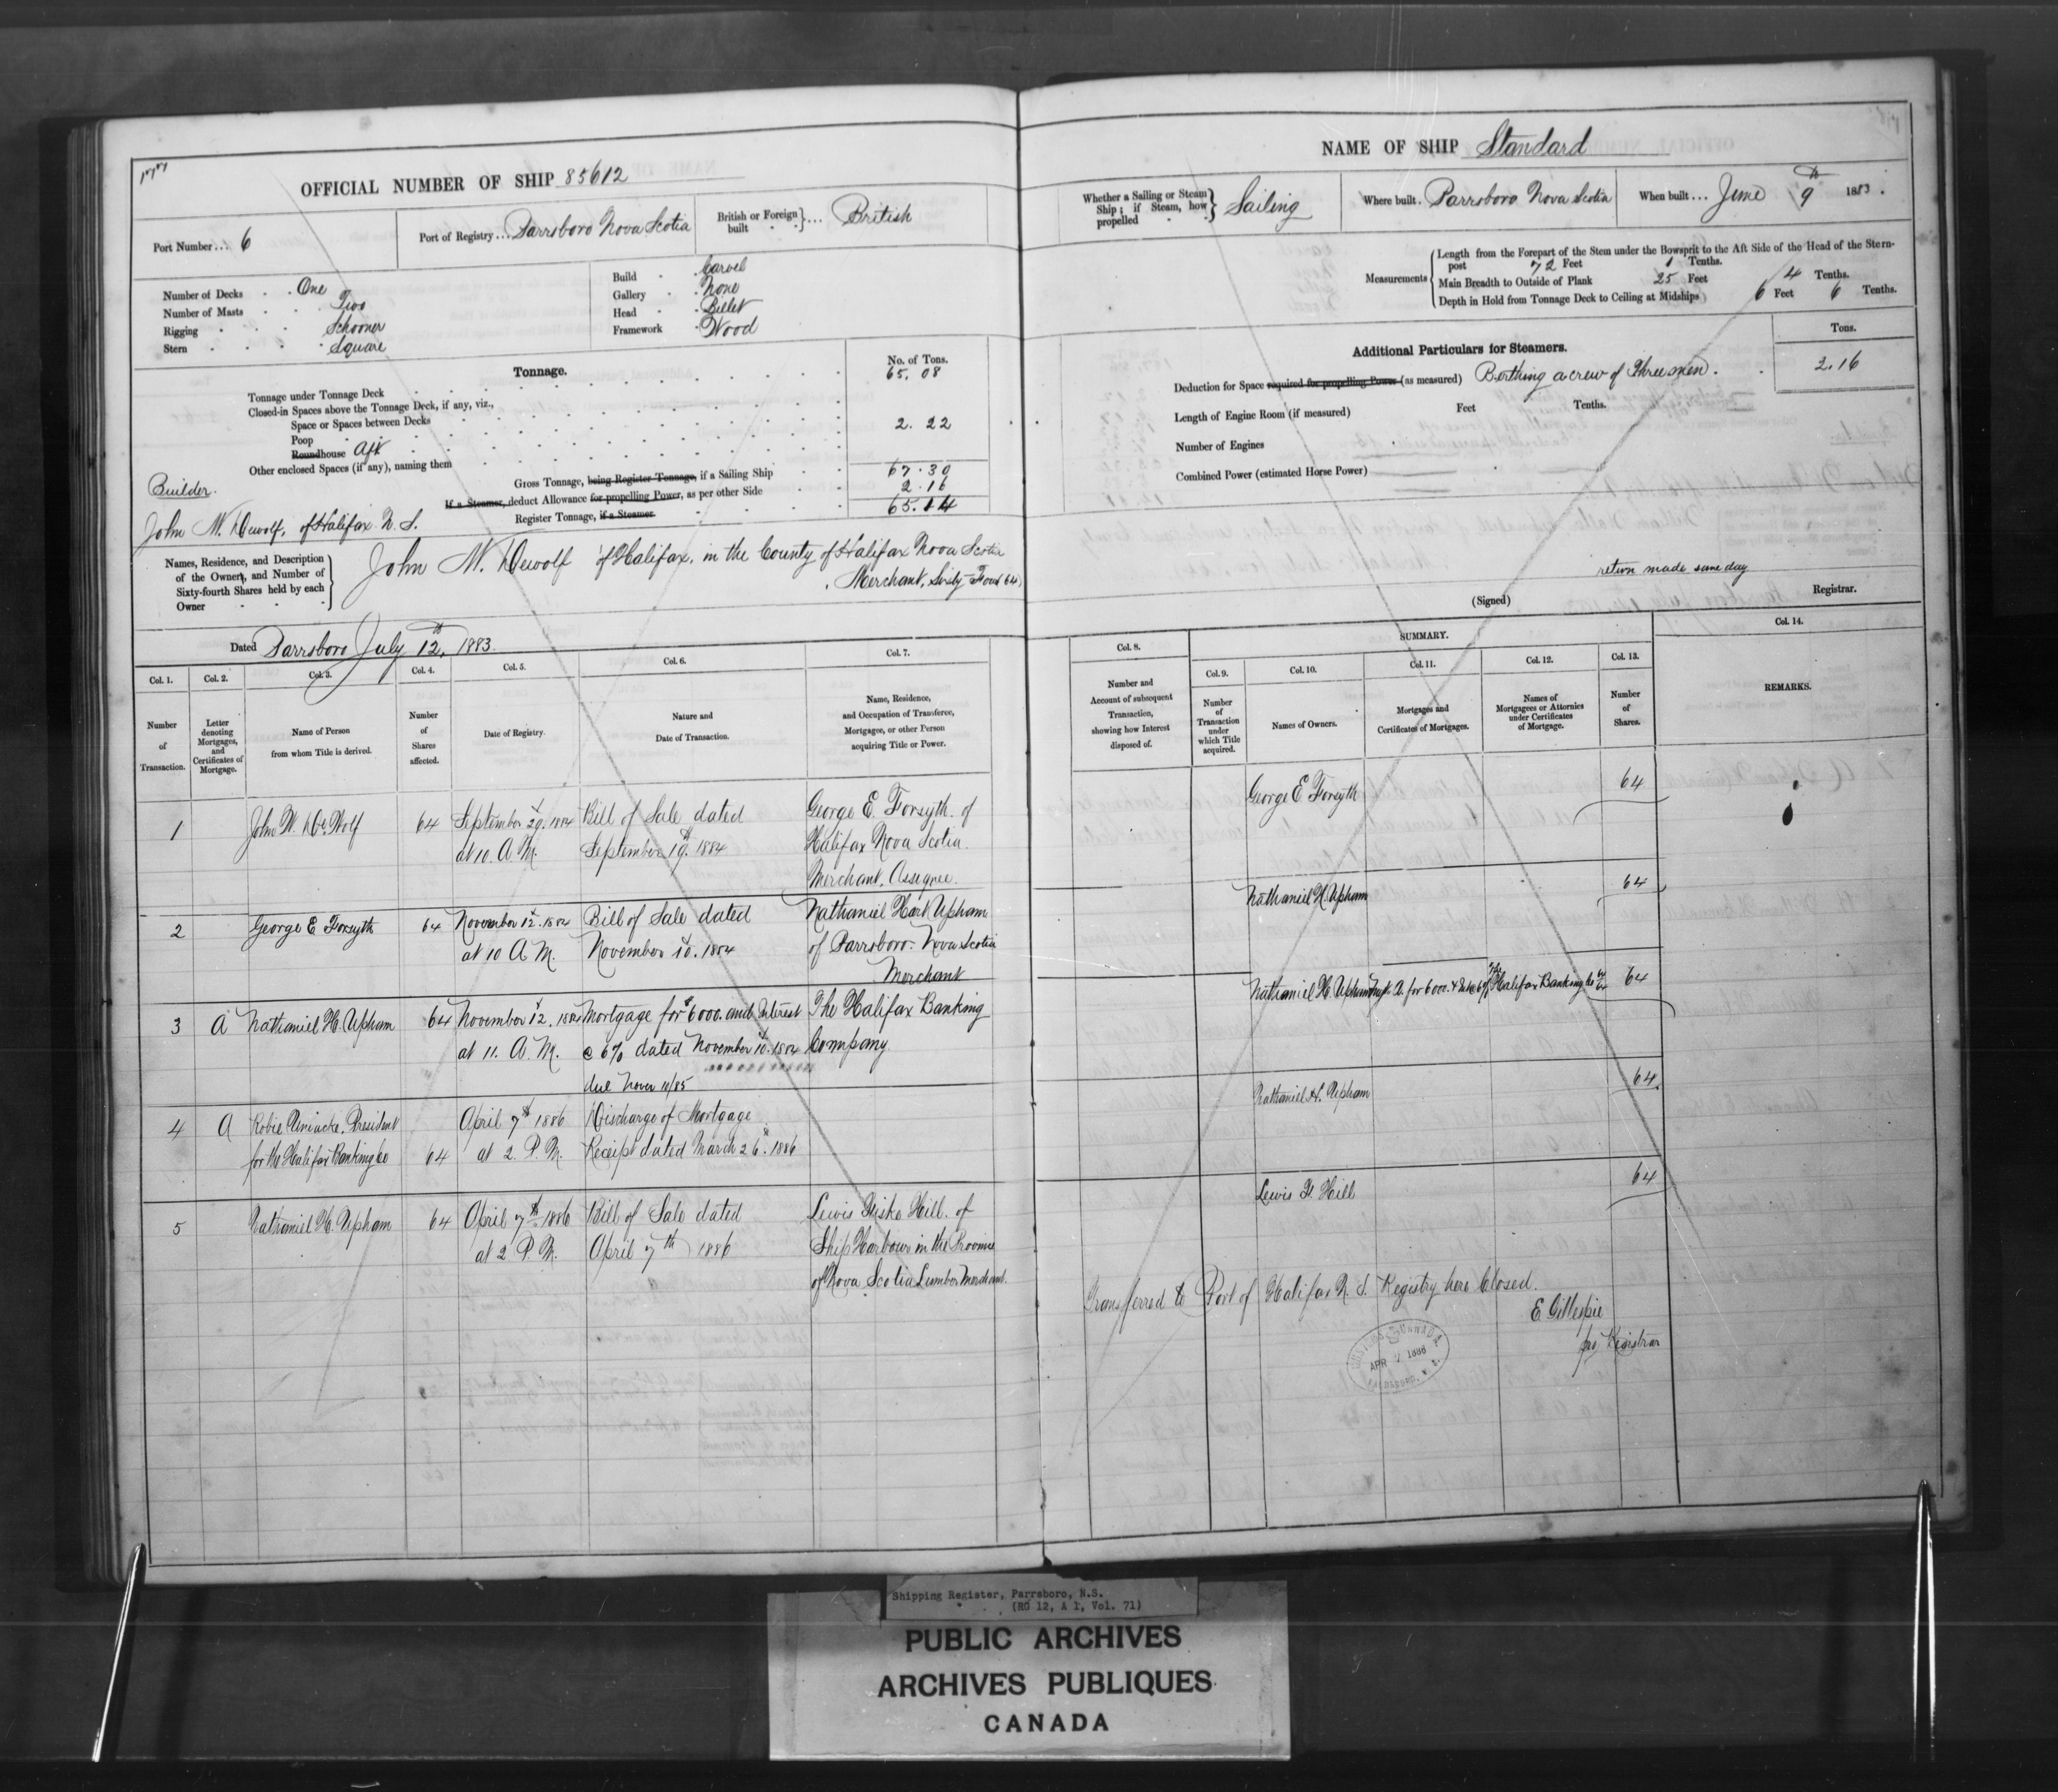 177
OFFICIAL NUMBER OF SHIP 85612
Port Number ... 6
Port of Registry ... Parrsboro Nova Scotia
British or Foreign built ... British
Number of Decks . . One
Number of Masts . . Two
Rigging . . . Schooner
Stern . . . . Square
Build . Carvel
Gallery . None
Head . Billet
Framework . Wood
Tonnage.
No. of Tons.
Tonnage under Tonnage Deck 65.08
Closed-in Spaces above the Tonnage Deck, if any, viz.,
Space or Spaces between Decks
Poop 2.22
Roundhouse Aft
Other enclosed Spaces (if any), naming them
Gross Tonnage, being Register Tonnage, if a Sailing Ship 67.30
If a Steamer, deduct Allowance for propelling Power, as per other Side 2.16
Register Tonnage, if a Steamer 65.14
Builder.
John W. Dewolf, of Halifax N. S.
Names, Residence, and Description
of the Owners, and Number of
Sixty-fourth Shares held by each
Owner
John W. Dewolf of Halifax, in the County of Halifax Nova Scotia
Merchant, Sixty-Four (64)
Dated Parrsboro July 12th, 1883.
Col. 1. Col. 2. Col. 3. Col. 4. Col. 5. Col. 6. Col. 7.
Number of Transaction.
Letter denoting Mortgages, and Certificates of Mortgage.
Name of Person from whom Title is derived.
Number of Shares affected.
Date of Registry.
Nature and Date of Transaction.
Name, Residence, and Occupation of Transferee, Mortgagee, or other Person acquiring Title or Power.
1 John W. De Wolf 64 September 29. 1884 Bill of Sale dated George E. Forsyth of
at 10. A. M. September 19. 1884 Halifax Nova Scotia.
Merchant, Assignee.
2 George E Forsyth 64 November 12. 1884 Bill of Sale dated Nathaniel Hart Upham
at 10 A M. November 10. 1884 of Parrsboro. Nova Scotia
Merchant
3 A Nathaniel H. Upham 64 November 12. 1884 Mortgage for $6000. and Interest The Halifax Banking
at 11. A. M. @ 6% dated November 10. 1884 Company.
due Nover 10/85
4 A Robie Uniacke. President April 7th 1886 Discharge of Mortgage
for the Halifax Banking Co 64 at 2. P. M. Receipt dated March 26th. 1886
5 Nathaniel H. Upham 64 April 7th 1886 Bill of Sale dated Lewis Fiske Hill. of
at 2 P. M. April 7th 1886 Ship Harbour in the Province
of Nova Scotia Lumber Merchant.
NAME OF SHIP Standard
Whether a Sailing or Steam Ship; if Steam, how propelled Sailing
Where built . Parrsboro Nova Scotia
When built ... June 9th 1883.
Measurements
Length from the Forepart of the Stem under the Bowsprit to the Aft Side of the Head of the Stern-
post 72 Feet 1 Tenths.
Main Breadth to Outside of Plank 25 Feet 4 Tenths.
Depth in Hold from Tonnage Deck to Ceiling at Midships 6 Feet 6 Tenths.
Additional Particulars for Steamers.
Tons.
Deduction for Space required for propelling Power (as measured) Berthing a crew of Three men. 2.16
Length of Engine Room (if measured) Feet Tenths.
Number of Engines
Combined Power (estimated Horse Power)
return made same day
(Signed) Registrar.
Col. 8. SUMMARY. Col. 14.
Col. 9. Col. 10. Col. 11. Col. 12. Col. 13.
Number and Account of subsequent Transaction, showing how Interest disposed of.
Number of Transaction under which Title acquired.
Names of Owners.
Mortgages and Certificates of Mortgages.
Names of Mortgagees or Attornies under Certificates of Mortgage.
Number of Shares.
REMARKS.
George E Forsyth 64
Nathaniel H. Upham 64
Nathaniel H. Upham A. for 6000. The Halifax Banking Co 64 64
Nathaniel H. Upham 64
Lewis F. Hill 64
Transferred to Port of Halifax N. S. Registry here Closed.
E Gillespie
Registrar
CUSTOMS CANADA
APR 7 1886
PARRSBORO, N. S.
Shipping Register, Parrsboro, N.S.
(RG 12, A 1, Vol. 71)
PUBLIC ARCHIVES
ARCHIVES PUBLIQUES
CANADA